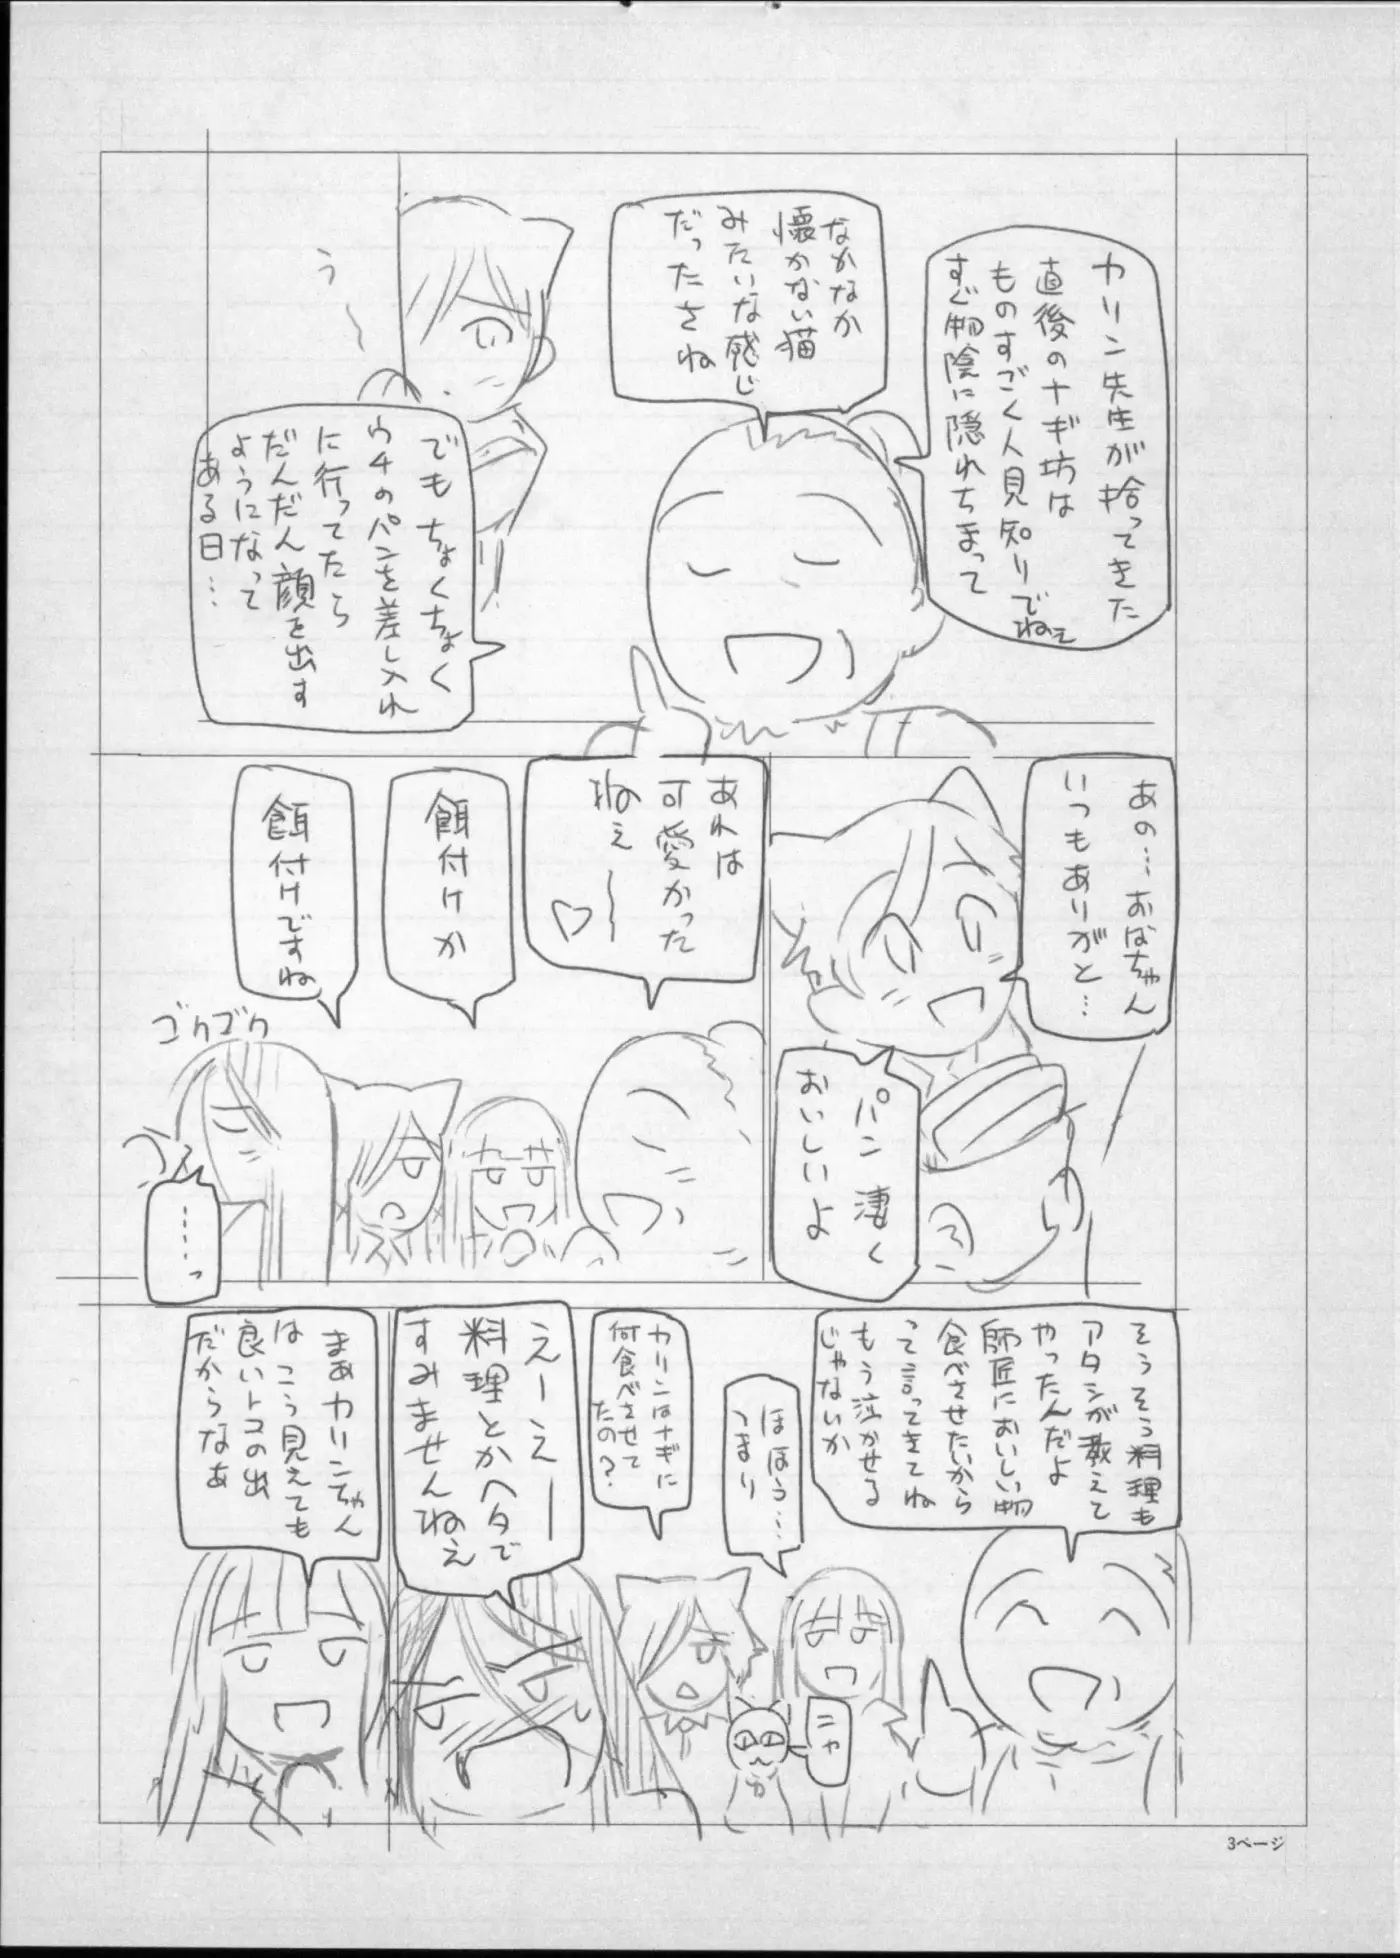 カリン先生が拾ってきた
直後のナギ坊は
ものすごく人見知りでねぇ
すぐ物陰に隠れちまって
なかなか
懐かない猫
みたいな感じ
だったさね
う〜
でもちょくちょく
ウチのパンを差し入れ
に行ってたら
だんだん顔を出す
ようになって
ある日…
あの…おばちゃん
いつもありがと…
パン凄く
おいしいよ
あれは
可愛かった
ねぇ〜〜♡
餌付けか
餌付けですね
ゴクゴク
……っ
そうそう料理も
アタシが教えて
やったんだよ
師匠においしい物
食べさせたいから
って言ってきてね
もう泣かせる
じゃないか
ほほう…
つまり
カリンはナギに
何食べさせて
たの?
ニャ
えーえー
料理とかヘタで
すみませんねえ
まぁカリンちゃん
はこう見えても
良いトコの出
だからなぁ
3ページ